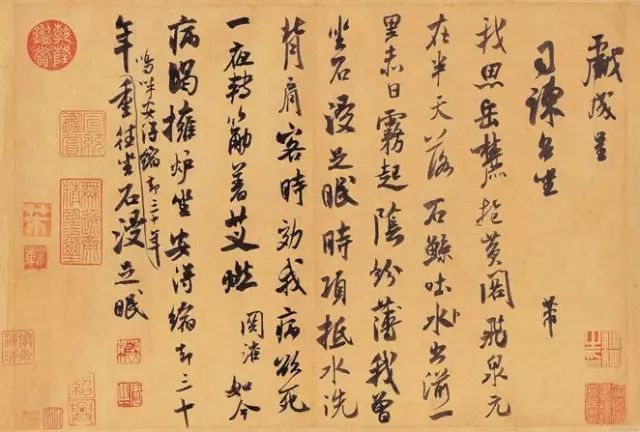 戲成呈
司諫台坐
芾
我思岳麓抱黃閣飛泉元
在半天落石鯨吐水出湔一
里赤日霧起陰紛薄我曾
坐石浸足眠時項抵水洗
背肩客時效我病欲死
一夜轉筋著艾燃 關灌 如今
病渴擁爐坐安得縮卻三十
年
嗚呼安得縮卻三十年
重往坐石浸足眠
乾隆鑑賞
紹興